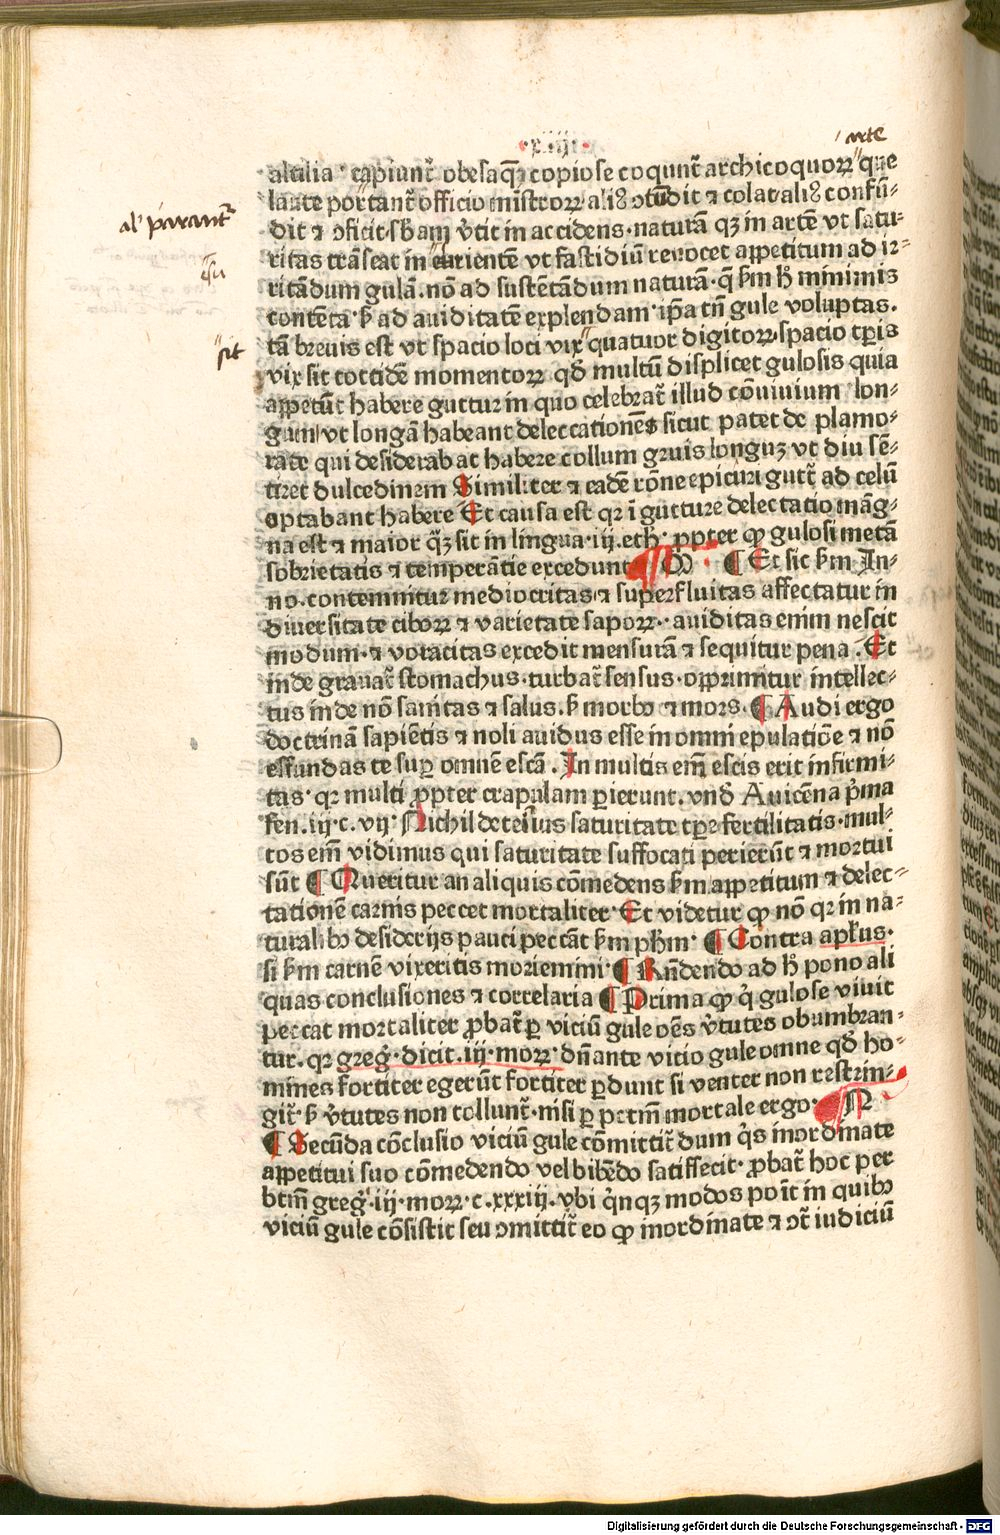 ·x·iiij·
arte
altilia· capiunt᷑ obesaq̄ꝫ copiose coqunt᷑ archicoquoꝝ que
laute portant᷑ officio mīstroꝝ aliꝰ ↄtūdit ⁊ colat·aliꝰ confū-
al' parant᷑
dit ⁊ ↄficit·sb'am v̓tit in accidens·naturā qꝫ in artē vt satu-
ritas trāseat in eurientē vt fastidiū reuocet appetitum ad ir-
esu
ritādum gulā·nō ad sustētādum naturā·q̄ ẜm h̓ minimis
contēta·ẜ ad auiditatē explendam·ip̄a tn̄ gule voluptas.
tā breuis est vt spacio loci vix quatuor digitoꝝ·spacio tp̄is
sit
vix sit totidē momentoꝝ qd̓ multū displicet gulosis quia
appetūt habere guttur in quo celebrat᷑ illud cōuiuium lon-
gum vt longā habeant delectationēs sicut patet de plamo-
rate qui desiderabat habere collum gruis longuꝫ vt diu sē-
tiret dulcedinem Similiter ⁊ eadē rōne epicuri gutt᷑ ad celū
optabant habere Et causa est qꝛ ī gutture delectatio māg-
na est ⁊ maior qꝫ̄ sit in lingua·iij·eth̓· ꝓpter ꝙ gulosi metā
sobrietatis ⁊ temperātie excedunt M ¶ Et sic ẜm In-
no·contemnitur mediocritas·⁊ superfluitas affectatur in
diuersitate ciboꝝ ⁊ varietate sapoꝝ·auiditas enim nescit
modum·⁊ voracitas excedit mensurā ⁊ sequitur pena·Et
inde grauat᷑ stomachus·turbat᷑ sensus·opprimitur intellec-
tus inde nō sanitas ⁊ salus·ẜ morbo ⁊ mors·¶ Audi ergo
doctrinā sapiētis ⁊ noli auidus esse in omni epulatiōe ⁊ nō
effundas te suꝑ omnē escā·In multis em̄ escis erit infirmi-
tas·qꝛ multi ꝓpter crapulam ꝑierunt·vnd̓ Auicēna p̓ma
fen·iij·c·vij·Nichil deterius saturitate tꝑe fertilitatis·mul-
tos em̄ vidimus qui saturitate suffocati perierūt ⁊ mortui
sūt ¶ Queritur an aliquis cōmedens ẜm appetitum ⁊ delec-
tationē carnis peccet mortaliter·Et videtur ꝙ nō qꝛ in na-
turalibꝫ desiderijs pauci peccāt ẜm ph̄m·¶ Contra apl̓us·
si ẜm carnē vixeritis moriemini·¶ Rn̄dendo ad h̓ pono ali
quas conclusiones ⁊ correlaria ¶ Prima ꝙ q̓ gulose viuit
peccat mortaliter ꝓbat᷑ ꝑ viciū gule oēs v̓tutes obumbran-
tur·qꝛ greg̓·dicit·iij·moꝝ·dn̄ante vicio gule omne qd̓ ho-
mines fortiter egerūt fortiter ꝑdunt si venter non restrin-
git᷑·ẜ v̓tutes non tollunt᷑·nisi ꝑ pctm̄ mortale ergo· N
¶ Secūda cōclusio viciū gule cōmittit᷑ dum q̓s inordinate
appetitui suo cōmedendo vel bibēdo satisfecit·ꝓbat᷑ hoc per
btm̄ greg̓·iij·moꝝ·c·xxxiij·vbi q̓nqꝫ modos poīt in quibꝫ
viciū gule cōsistit seu ↄmittit᷑ eo ꝙ inordinate ⁊ ↄt᷑ iudiciū
Digitalisierung gefördert durch die Deutsche Forschungsgemeinschaft - DFG